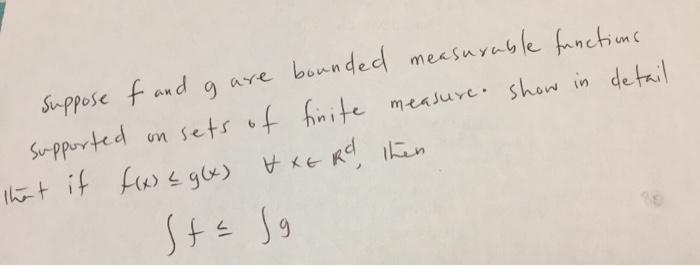 Suppose f and g are bounded measurable functions
supported on sets of finite measure. show in detail
that if f(x) ≤ g(x) ∀ x ∈ Rᵈ, then
∫f ≤ ∫g